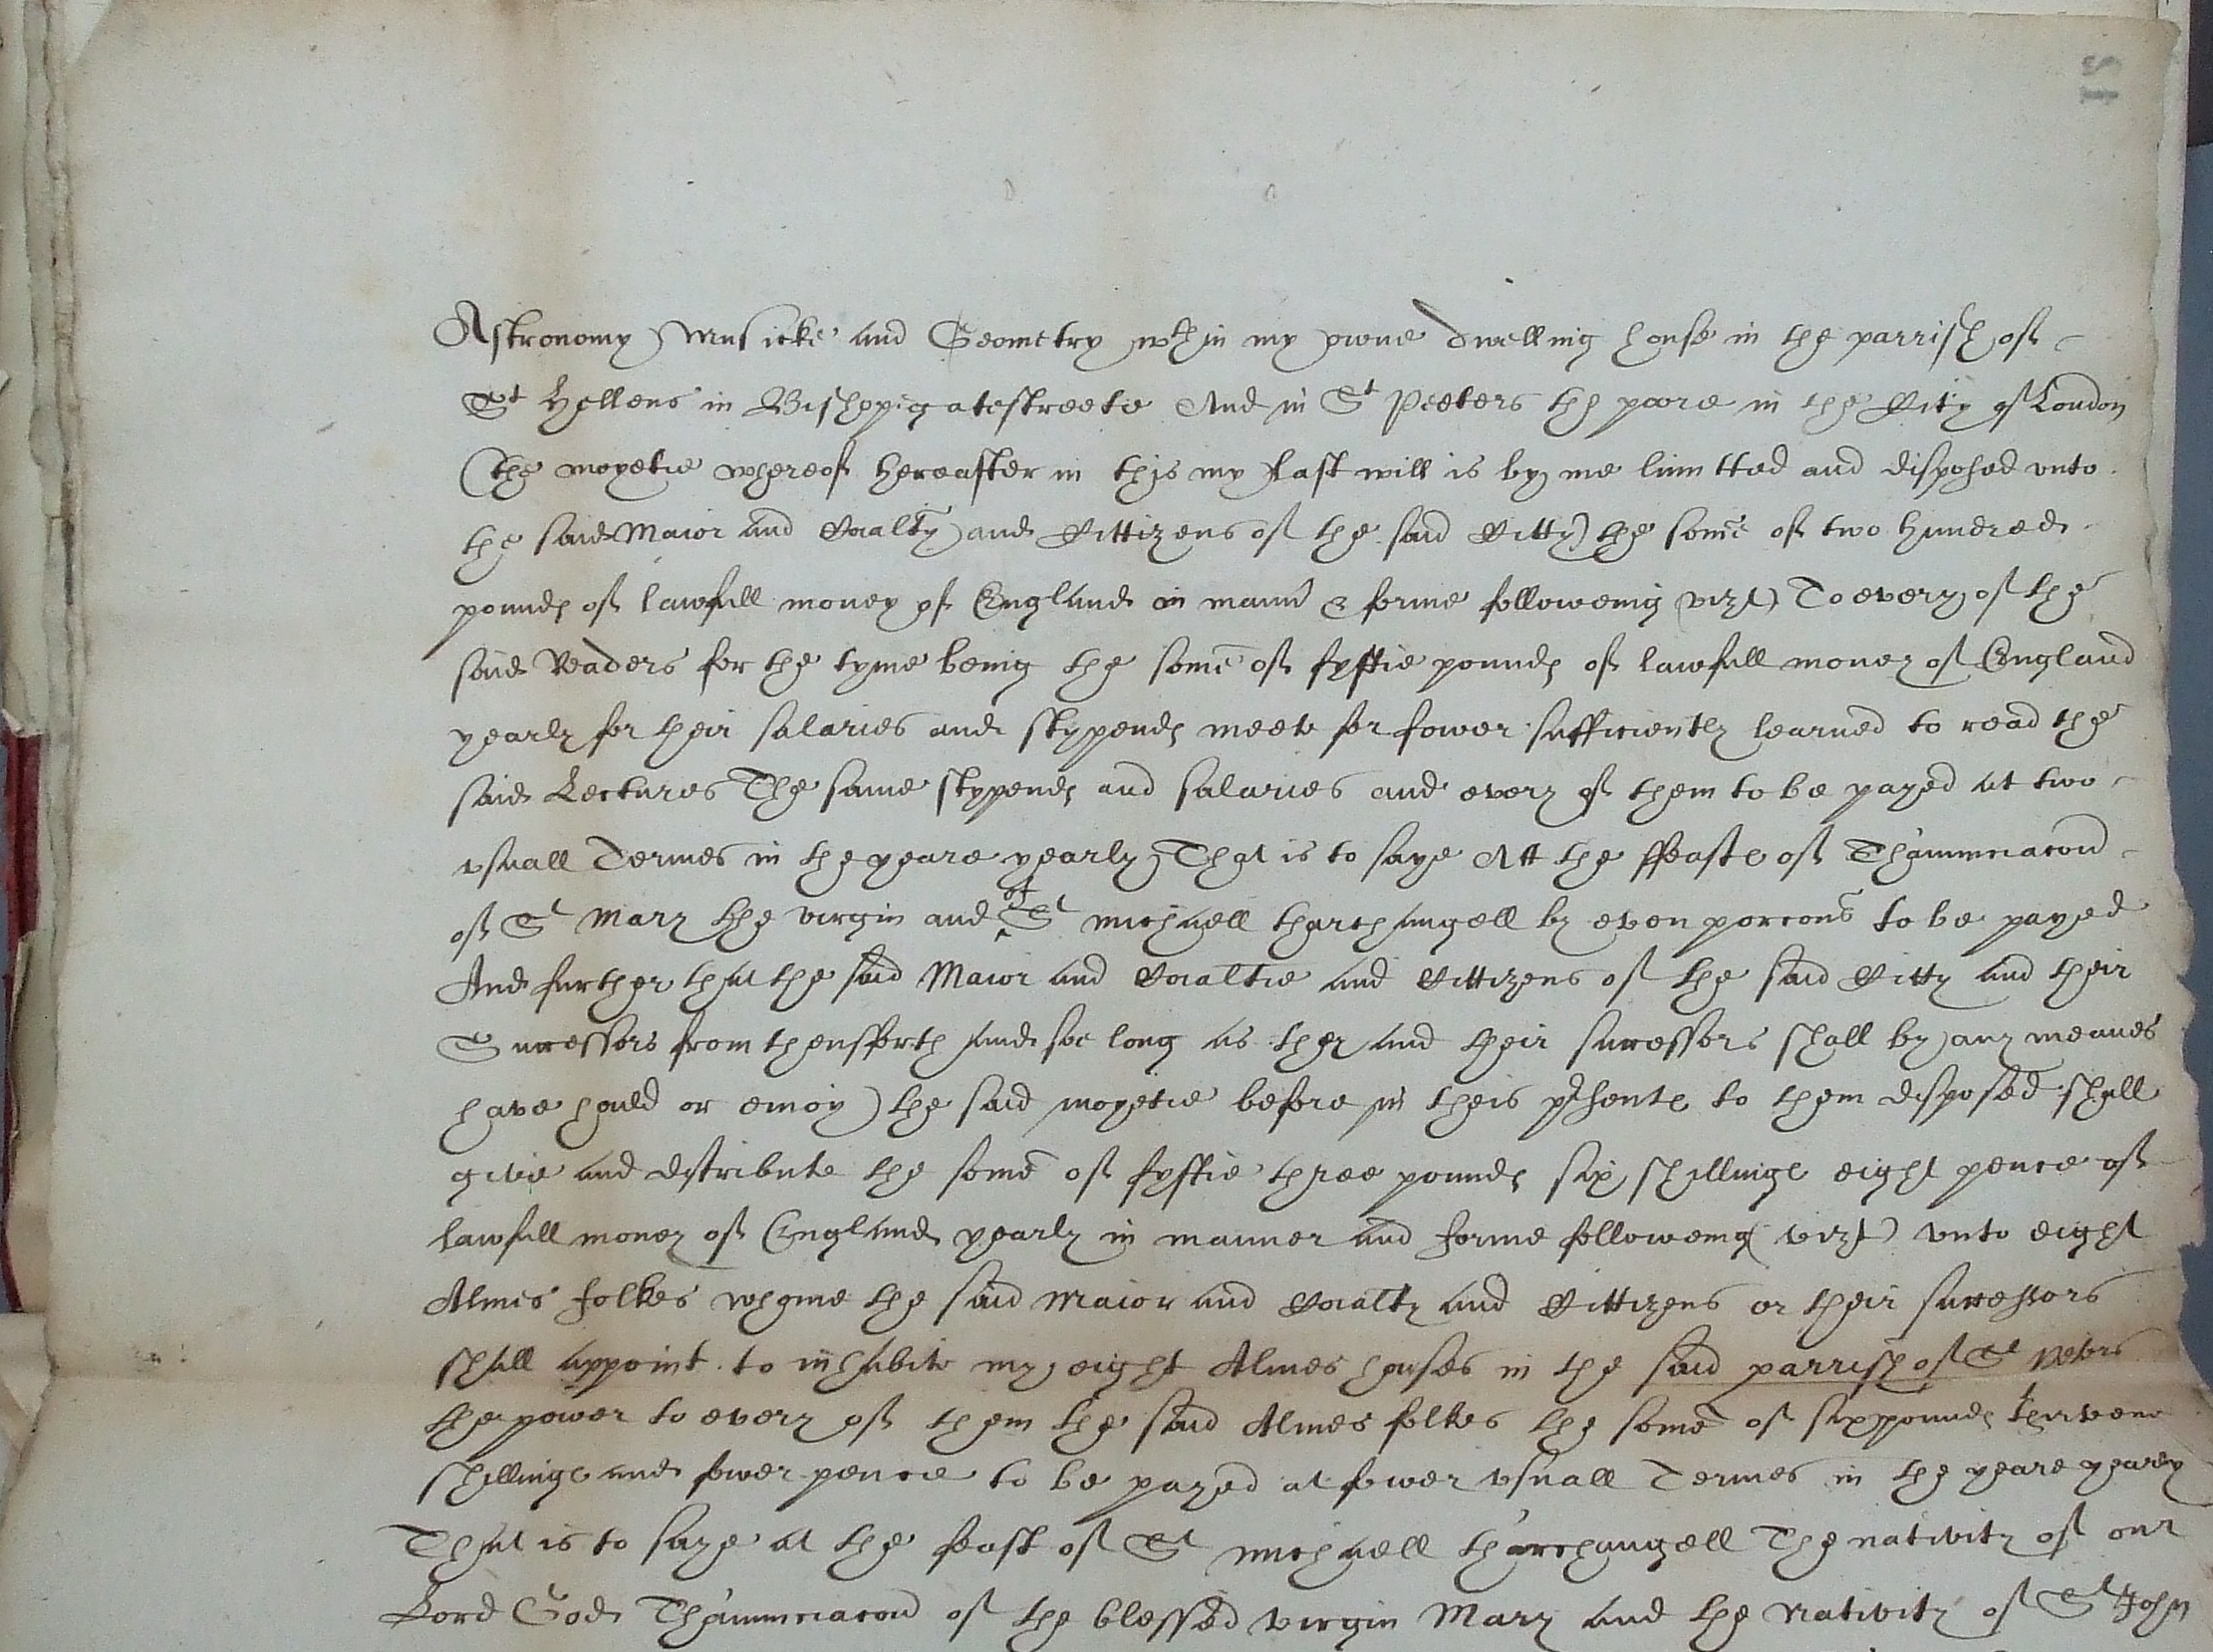 51
Astronomy Musicke and Geometry wthin my owne dwelling house in the parrish of
St Hellens in Bishopp̱gatestreete And in St Peeters the poore in the Citÿ of London
(the moyetie whereof hereafter in this my last will is by me limitted and disposed vnto
the said Maior and Coĩaltÿ and Cittizens of the said Citty) the som̃e of two hundred
pounds of lawfull money of England in mann̄ & forme followeing (vizt) To every of the
said Readers for the tyme being the some of fyftie pounds of lawfull money of England
yearly for their salaries and stypends meete for fower sufficiently learned to read the
said Lectures The same stypends and salaries and every of them to be payed at two
vsuall Termes in the yeare yearly That is to saye Att the ffeaste of Th'annunciacon
of St Mary the virgin and of St Michaell tharchangell by even porcons to be payed
And further that the said Maior and Coialtie and Cittizens of the said Citty and their
Successors from thensforth and soe long as they and their successors shall by any meanes
have hould or enioy the said moyetie before in theis p̃sente to them disposed shall
give and distribute the some of fyftie three pounds six shillings eight pence of
lawfull money of England yearly in manner and forme followeing (vizt) vnto eight
Almes folkes whome the said Maior and Coialty and Cittizens or their successors
shall appoint to inhabite my eight Almes houses in the said parrish of St Peters
the power to every of them the said Almes folkes the some of six pounds thirteene
shillings and fower pence to be payed at fower vsuall Termes in the yeare yearly
That is to saye at the feast of St Michaell th'archangell The nativity of our
Lord God Th'annunciacon of the blessed virgin Mary and the Nativity of St John